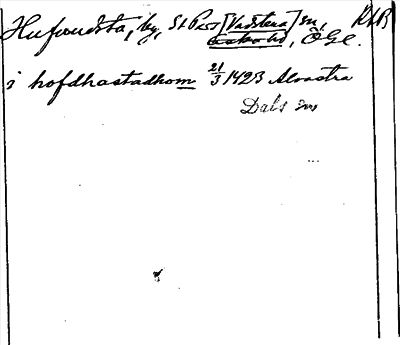 Hufvudsta, by, St Per [Vadstena] sn, ÖGl. RLB
i hofdhastadhom 21/3 1423 Alvastra
Dals sn